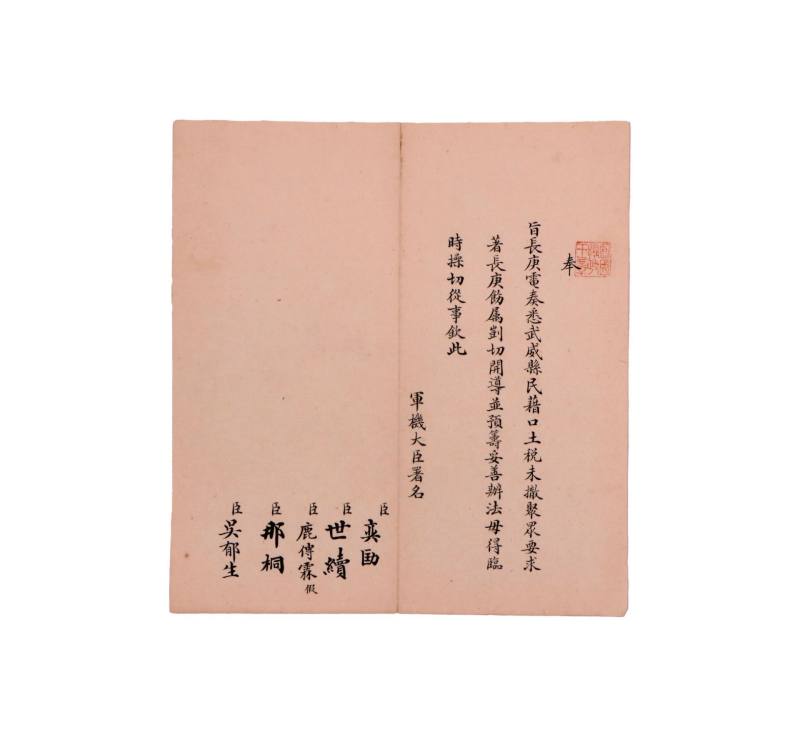 奉
旨長庚電奏悉武威縣民藉口土稅未撤聚眾要求
著長庚飭屬剴切開導並預籌妥善辦法毋得臨
時操切從事欽此
軍機大臣署名
臣奕劻
臣世續
臣鹿傳霖假
臣那桐
臣吳郁生